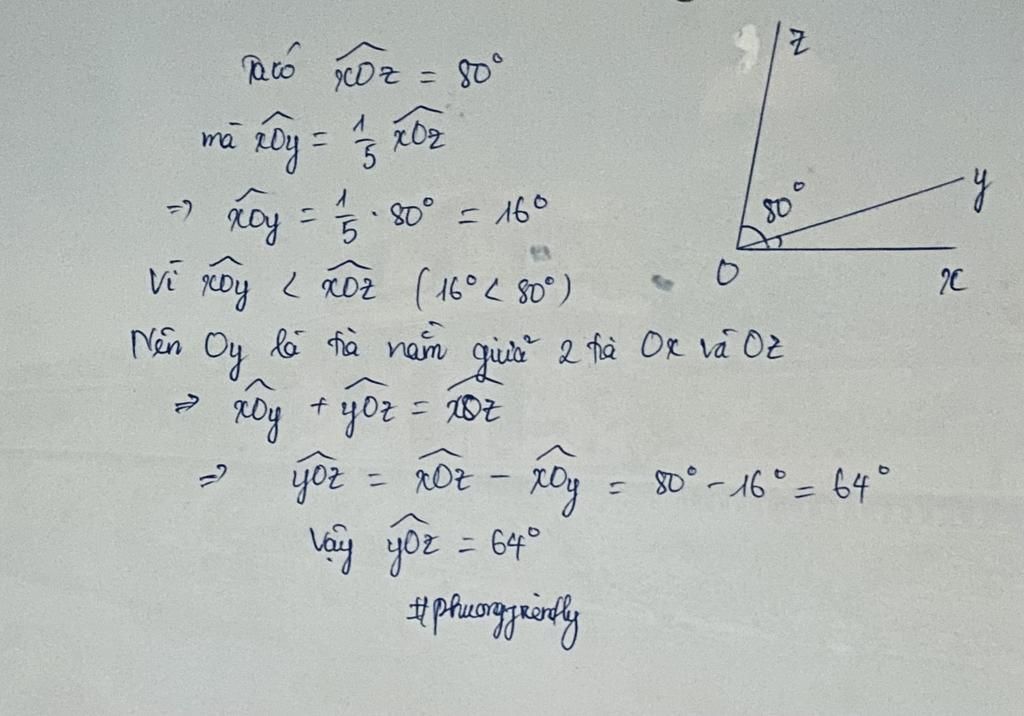 Ta có xOz = 80°
mà xOy = 1/5 xOz
=> xOy = 1/5 . 80° = 16°
Vì xOy < xOz (16° < 80°)
Nên Oy là tia nằm giữa 2 tia Ox và Oz
=> xOy + yOz = xOz
=> yOz = xOz - xOy = 80° - 16° = 64°
Vậy yOz = 64°
z
80°
y
O
x